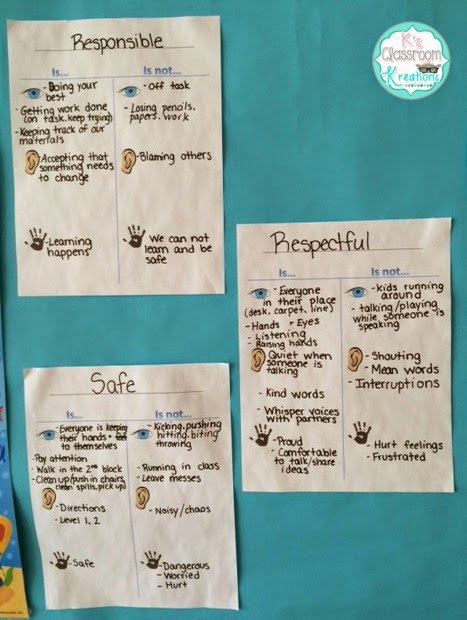 K's
Classroom
Kreations
Responsible
Is...
- Doing your
best
- Getting work done
(on task, keep trying)
- Keeping track of our
materials
- Accepting that
something needs
to change
- Learning
happens
Is not...
- Off task
- Losing pencils,
papers, work
- Blaming others
- We can not
learn and be
safe
Respectful
Is...
- Everyone
in their place
(desk, carpet, line)
- Hands + Eyes
- Listening
- Raising hands
- Quiet when
someone is
talking
- Kind words
- Whisper voices
with partners
- Proud
- Comfortable
to talk/share
ideas
Is not...
- kids running
around
- talking/playing
while someone is
speaking
- Shouting
- Mean words
- Interruptions
- Hurt feelings
- Frustrated
Safe
Is...
- Everyone is keeping
their hands + feet
to themselves
- Pay attention
- Walk in the 2nd block
- Clean up (push in chairs,
clean spills, pick up)
- Directions
- Level 1, 2
- Safe
Is not...
- Kicking, pushing
hitting, biting
throwing
- Running in class
- Leave messes
- Noisy/chaos
- Dangerous
- Worried
- Hurt